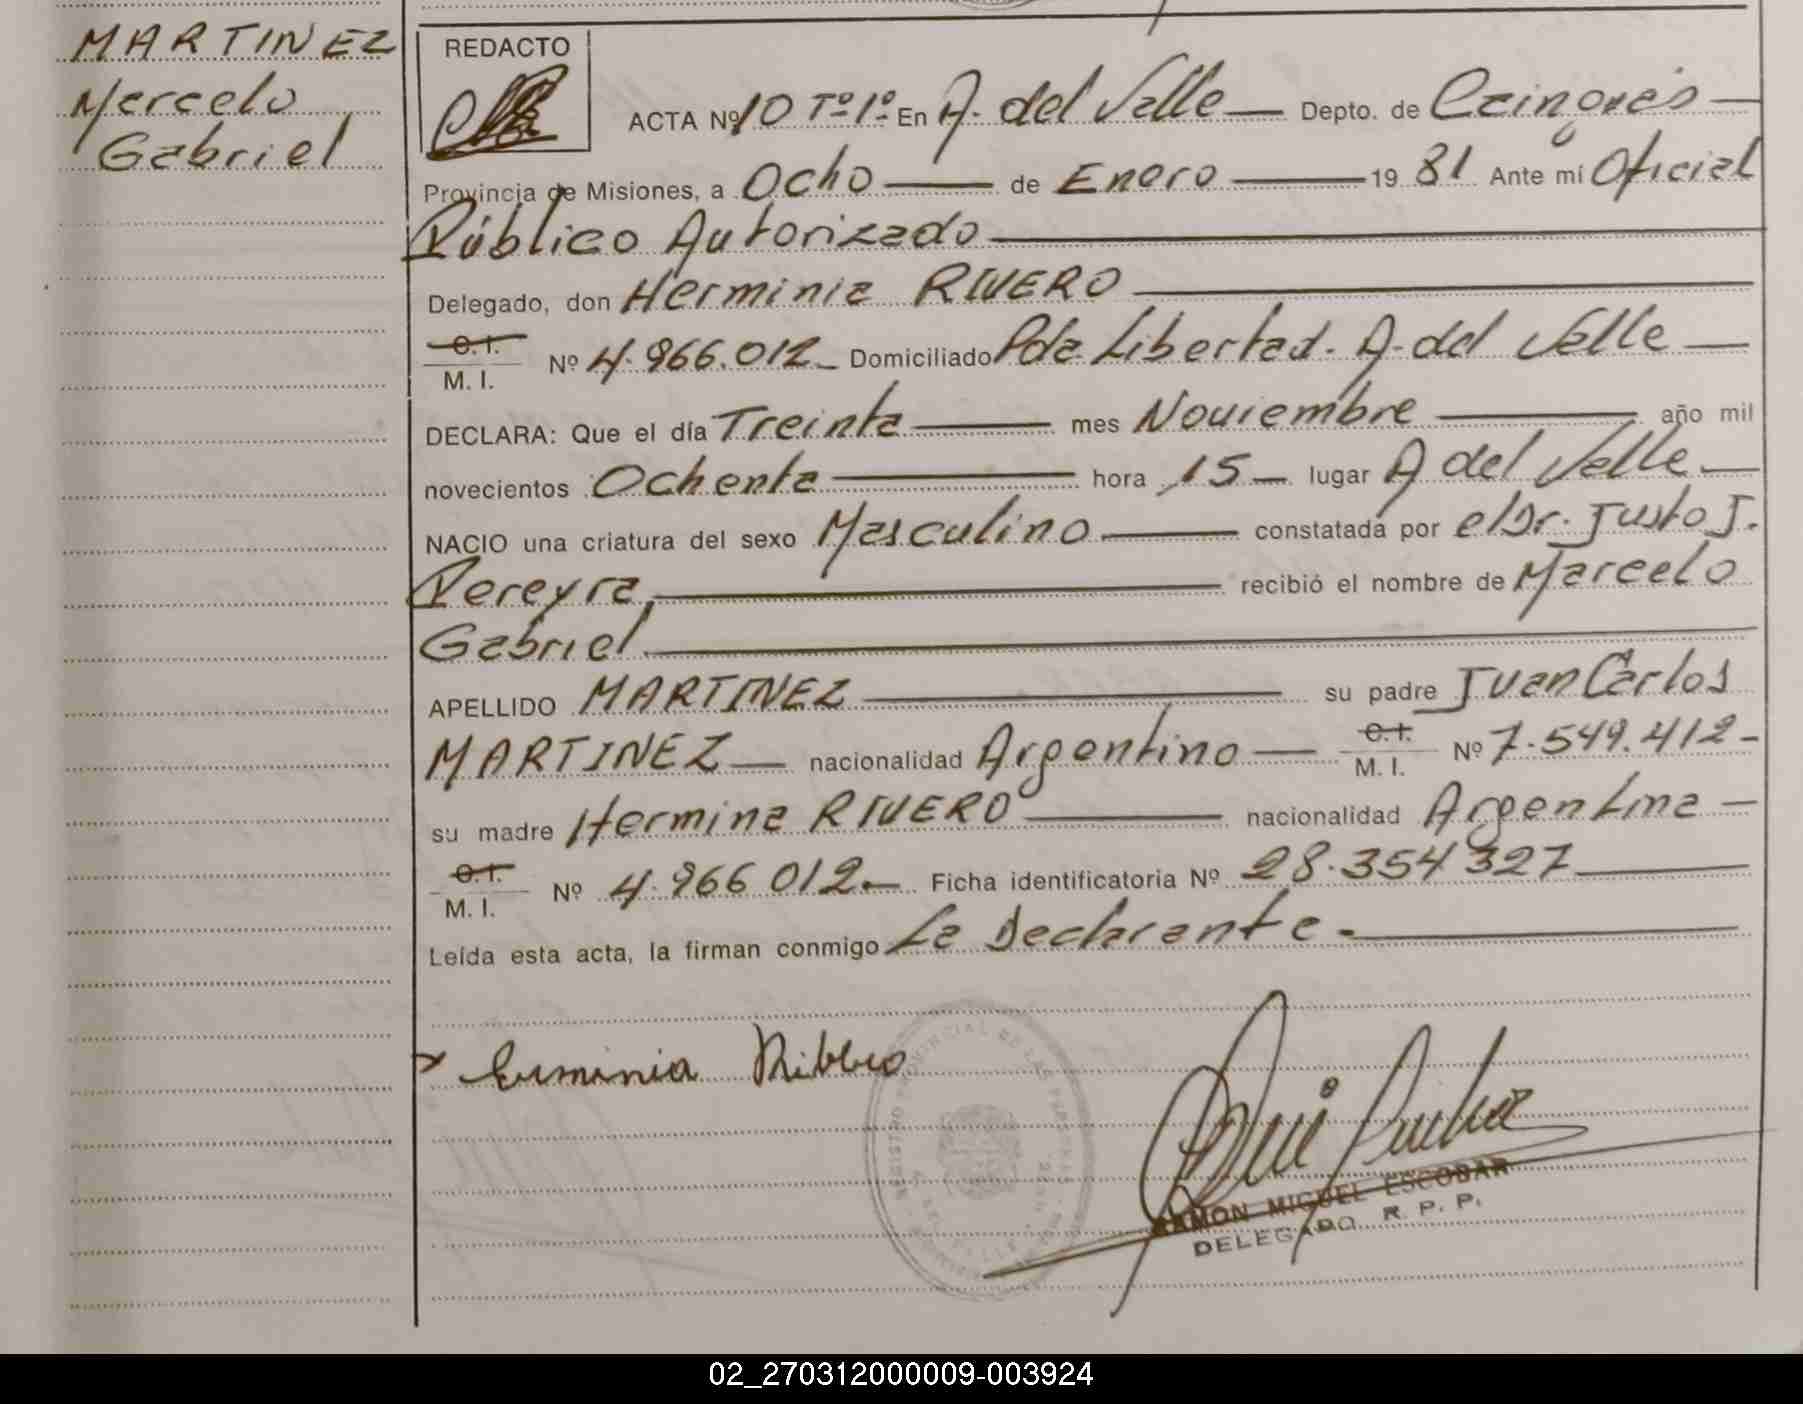 MARTINEZ
Marcelo
Gabriel
REDACTO
ACTA Nº 10 Tº 1º En A. del Valle — Depto. de Cainguás —
Provincia de Misiones, a Ocho — de Enero — 19 81 Ante mí Oficial
Público Autorizado —
Delegado, don Herminia RIVERO —
C. I.
M. I. Nº 4.966.012 — Domiciliado Pda Libertad. A. del Valle —
DECLARA: Que el día Treinta — mes Noviembre — año mil
novecientos Ochenta — hora 15 — lugar A del Valle —
NACIO una criatura del sexo Masculino — constatada por el Dr. Justo J.
Pereyra — recibió el nombre de Marcelo
Gabriel —
APELLIDO MARTINEZ — su padre Juan Carlos
MARTINEZ — nacionalidad Argentino — C. I. M. I. Nº 7.549.412 -
su madre Hermina RIVERO — nacionalidad Argentina —
C. I.
M. I. Nº 4.966 012 — Ficha identificatoria Nº 28.354 327 —
Leída esta acta, la firman conmigo La Declarante. —
Erminia Ribero
RAMON MIGUEL ESCOBAR
DELEGADO R. P. P.
02_270312000009-003924